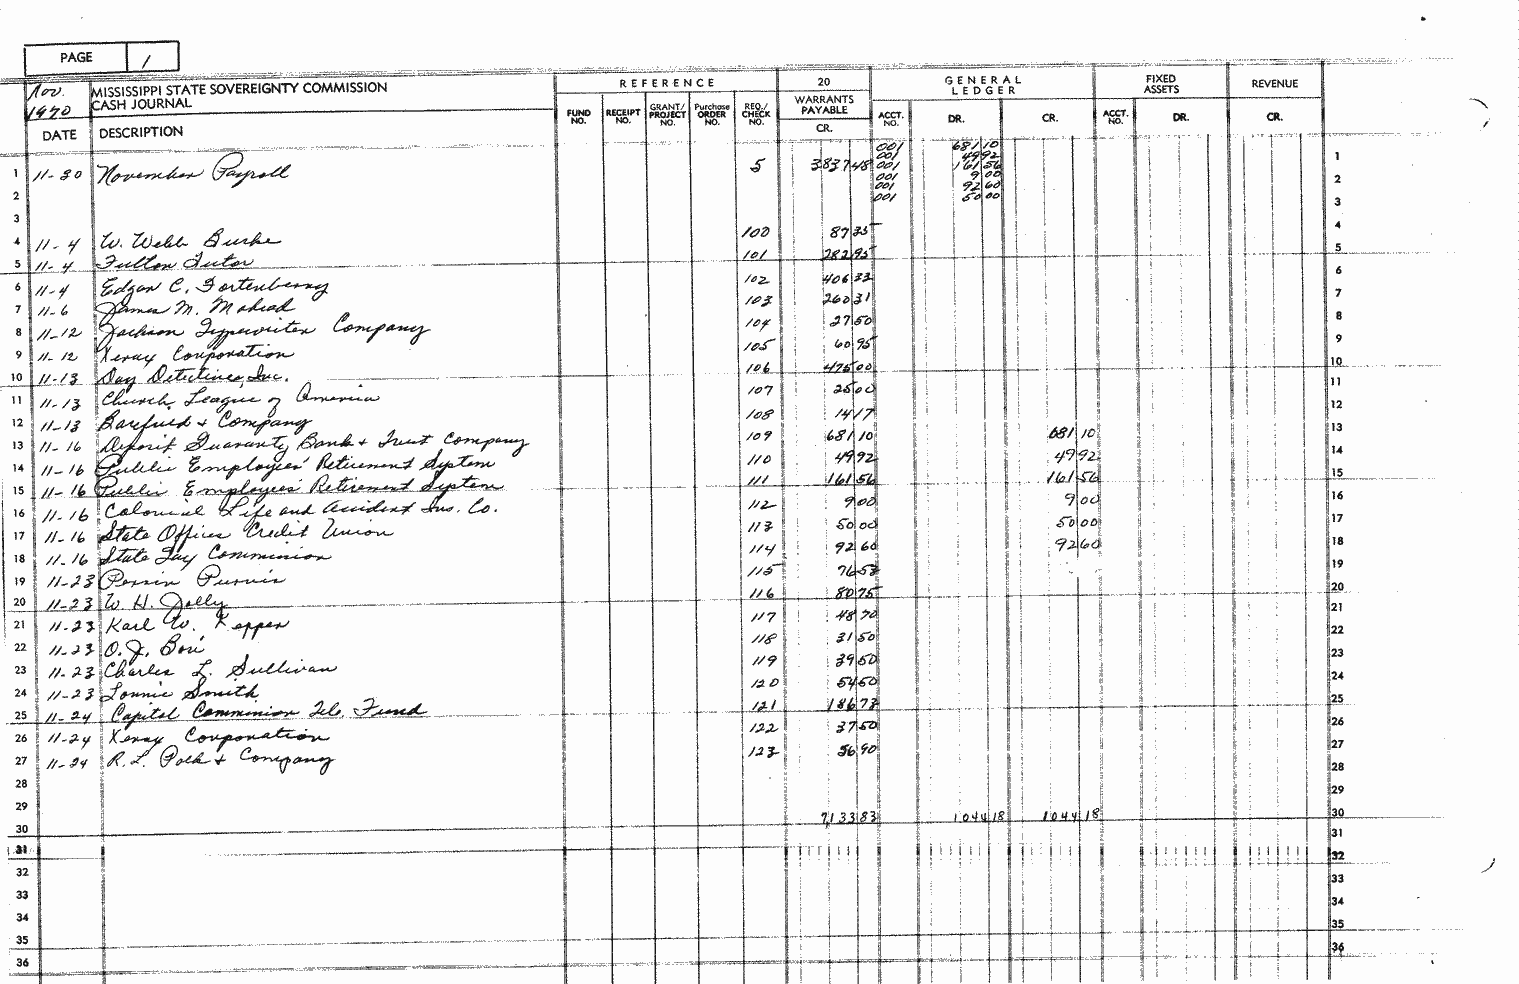 PAGE 1
Nov. 1970 MISSISSIPPI STATE SOVEREIGNTY COMMISSION
CASH JOURNAL
REFERENCE 20 GENERAL LEDGER FIXED ASSETS REVENUE
DATE DESCRIPTION FUND NO. RECEIPT NO. GRANT/PROJECT NO. Purchase ORDER NO. REQ./CHECK NO. WARRANTS PAYABLE CR. ACCT. NO. DR. CR. ACCT. NO. DR. CR.
001 681 10
001 49 92
1 11-30 November Payroll 5 3837 48 001 161 56 1
001 9 00
2 001 92 60 2
001 50 00
3 3
4 11-4 W. Webb Burke 100 87 35 4
5 11-4 Fulton Tutor 101 282 95 5
6 11-4 Edgar C. Fortenberry 102 406 33 6
7 11-6 James M. Mohead 103 260 31 7
8 11-12 Jackson Typewriter Company 104 27 50 8
9 11-12 Xerox Corporation 105 60 95 9
10 11-13 Day Detectives, Inc. 106 475 00 10
11 11-13 Church League of America 107 25 00 11
12 11-13 Barefield & Company 108 14 17 12
13 11-16 Deposit Guaranty Bank & Trust Company 109 681 10 681 10 13
14 11-16 Public Employees' Retirement System 110 49 92 49 92 14
15 11-16 Public Employees' Retirement System 111 161 56 161 56 15
16 11-16 Colonial Life and Accident Ins. Co. 112 9 00 9 00 16
17 11-16 State Offices Credit Union 113 50 00 50 00 17
18 11-16 State Tax Commission 114 92 60 92 60 18
19 11-23 Perrin Purvis 115 76 53 19
20 11-23 W. H. Jolly 116 80 75 20
21 11-23 Karl W. Kepper 117 48 70 21
22 11-23 O. J. Bori 118 31 50 22
23 11-23 Charles L. Sullivan 119 39 50 23
24 11-23 Lonnie Smith 120 54 50 24
25 11-24 Capitol Commission Tele. Fund 121 186 73 25
26 11-24 Xerox Corporation 122 37 50 26
27 11-24 R. L. Polk & Company 123 56 90 27
28 28
29 29
30 7133 83 1044 18 1044 18 30
31 31
32 32
33 33
34 34
35 35
36 36